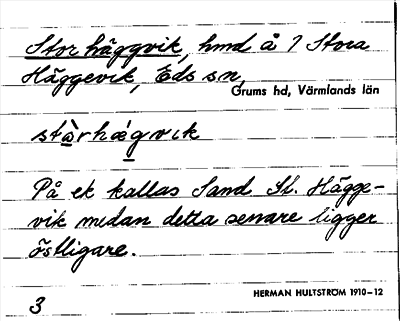 Storhäggvik, hmd å 1 Stora
Häggevik, Eds sn,
Grums hd, Värmlands län
stàrhǽgvik
På ek kallas Sand St. Hägge-
vik medan detta senare ligger
östligare.
HERMAN HULTSTRÖM 1910–12
3